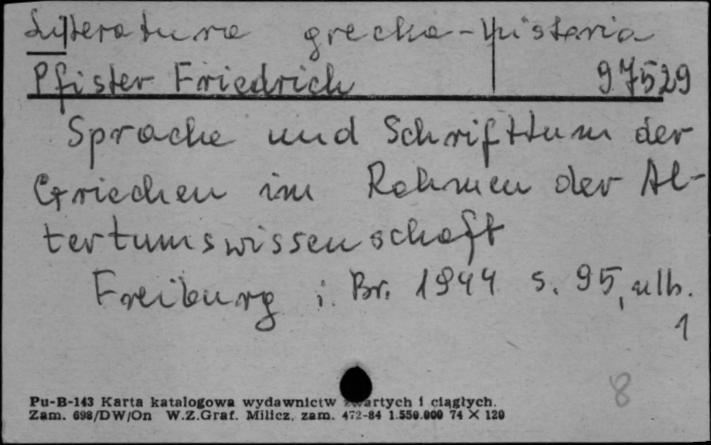 Literatura grecka - historia
Pfister Friedrich 97529
Sprache und Schrifttum der
Griechen im Rahmen der Al-
tertumswissenschaft
Freiburg i. Br. 1944 s. 95, ulb.
1
8
Pu-B-143 Karta katalogowa wydawnictw zwartych i ciągłych.
Zam. 698/DW/On W.Z.Graf. Milicz, zam. 472-84 1.550.000 74 X 120